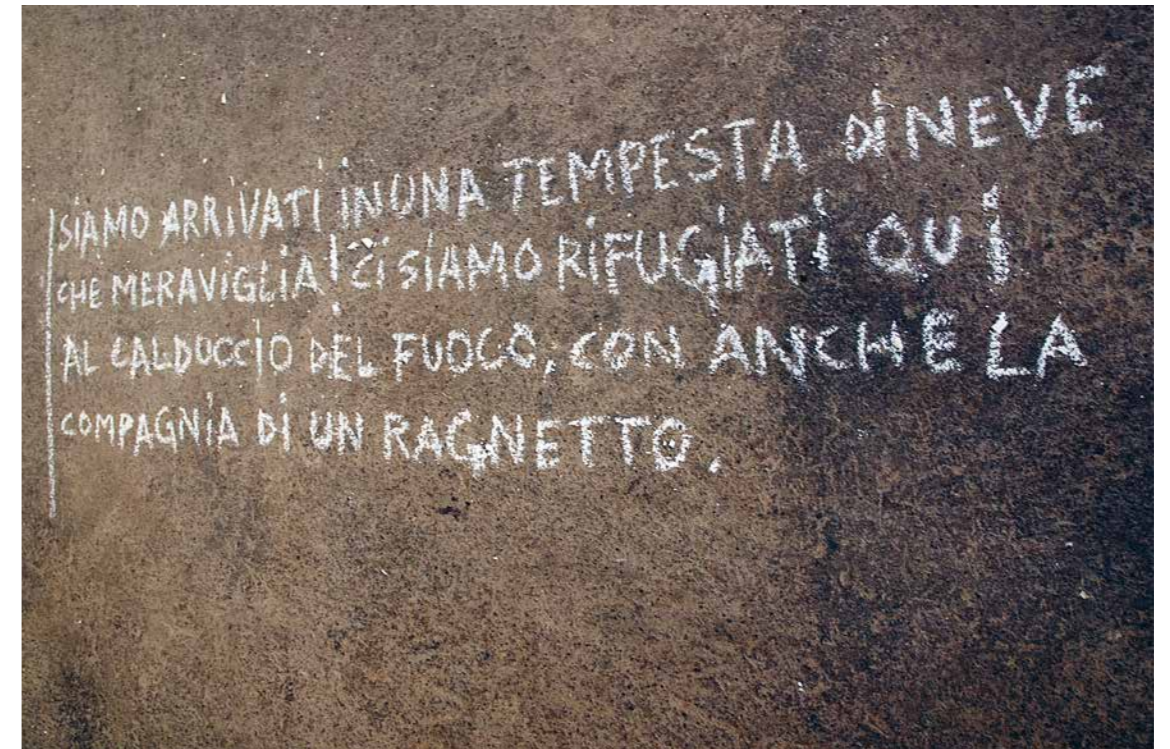 SiAMO ARRiVATi iN UNA TEMPESTA Di NEVE
CHE MERAViGLiA! Ci SiAMO RiFUGiATi QUi
AL CALDUCCiO DEL FUOCO, CON ANCHE LA
COMPAGNiA Di UN RAGNETTO.